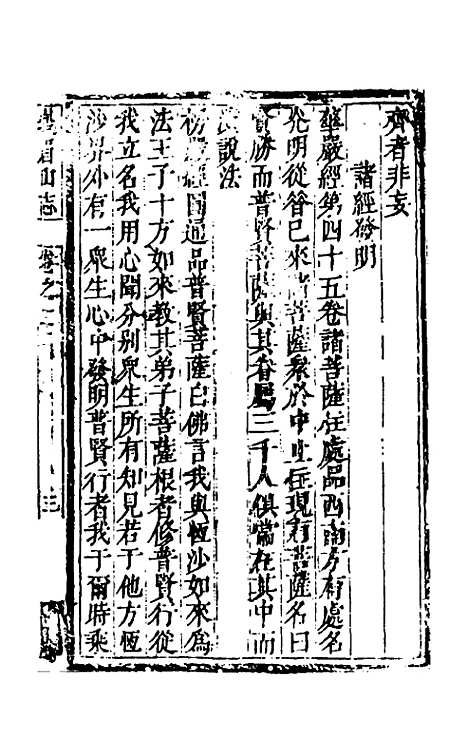 齊者非妄
諸經發明
華嚴經第四十五卷諸菩薩住處品西南方有處名
光明從昔已來諸菩薩衆於中止住現有菩薩名曰
賢勝而普賢菩薩與其眷屬三千人俱常在其中而
說法
楞嚴經圓通品普賢菩薩白佛言我與恆沙如來爲
法王子十方如來教其弟子菩薩根者修普賢行從
我立名我用心聞分别衆生所有知見若于他方恆
沙界外有一衆生心中發明普賢行者我于爾時乘
眉山志 卷之 三